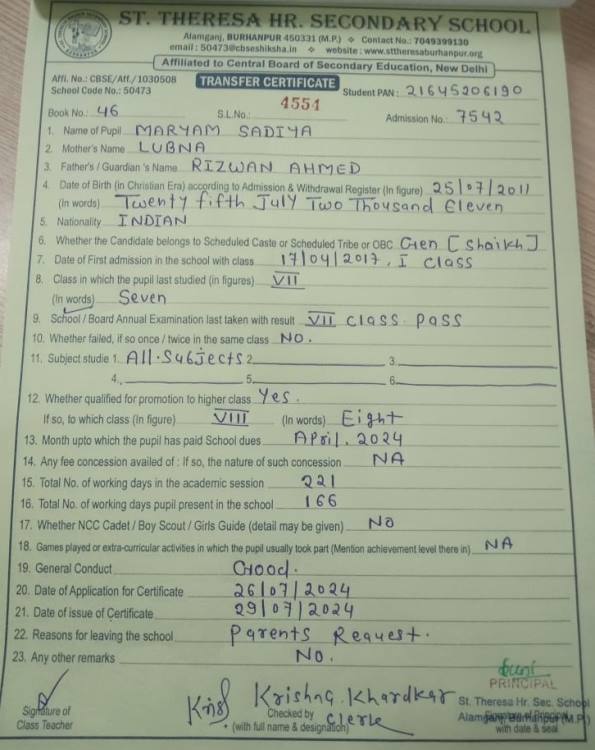 ST. THERESA HR. SECONDARY SCHOOL
Alamganj, BURHANPUR 450331 (M.P.) ❖ Contact No.: 7049399130
email : 50473@cbseshiksha.in ❖ website : www.sttheresaburhanpur.org
Affiliated to Central Board of Secondary Education, New Delhi
Affi. No.: CBSE/Aff./1030508 TRANSFER CERTIFICATE Student PAN : 21645206190
School Code No.: 50473
Book No.: 46 S.L.No.: 4551 Admission No.: 7542
1. Name of Pupil MARYAM SADIYA
2. Mother's Name LUBNA
3. Father's / Guardian 's Name RIZWAN AHMED
4. Date of Birth (in Christian Era) according to Admission & Withdrawal Register (In figure) 25/07/2011
(In words) Twenty fifth July Two Thousand Eleven
5. Nationality INDIAN
6. Whether the Candidate belongs to Scheduled Caste or Scheduled Tribe or OBC Gen [Shaikh]
7. Date of First admission in the school with class 17/04/2017, I class
8. Class in which the pupil last studied (in figures) VII
(In words) Seven
9. School / Board Annual Examination last taken with result VII class pass
10. Whether failed, if so once / twice in the same class NO.
11. Subject studie 1. All-Subjects 2. 3.
4. 5. 6.
12. Whether qualified for promotion to higher class Yes.
If so, to which class (In figure) VIII (In words) Eight
13. Month upto which the pupil has paid School dues April. 2024
14. Any fee concession availed of : If so, the nature of such concession NA
15. Total No. of working days in the academic session 221
16. Total No. of working days pupil present in the school 166
17. Whether NCC Cadet / Boy Scout / Girls Guide (detail may be given) No
18. Games played or extra-curricular activities in which the pupil usually took part (Mention achievement level there in) NA
19. General Conduct Good.
20. Date of Application for Certificate 26/07/2024
21. Date of issue of Certificate 29/07/2024
22. Reasons for leaving the school Parents Request.
23. Any other remarks No.
PRINCIPAL
Krishna Khardkar St. Theresa Hr. Sec. School
Signature of Checked by Clerk Alamganj, Burhanpur (M.P.)
Class Teacher (with full name & designation) with date & seal